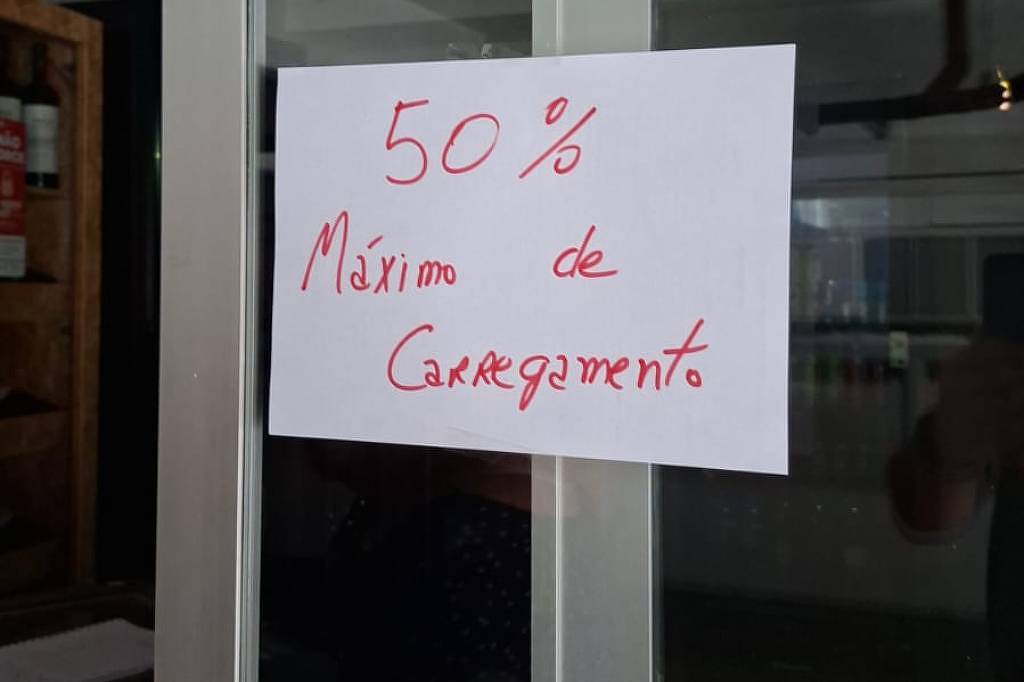 50%
Máximo de
Carregamento